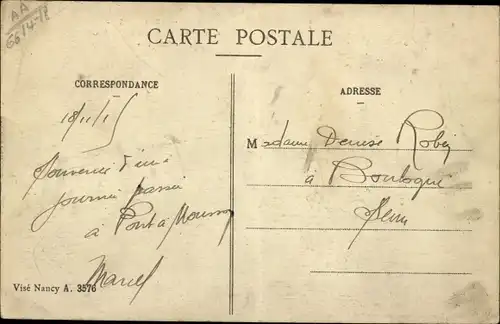 AA
66/4-12
CARTE POSTALE
CORRESPONDANCE
ADRESSE
18/11/15
Souvenir d'une
journée passée
à Pont à Mousson
Marcel
Madame Denise Robin
à Boulogne
Seine
Visé Nancy A. 3576